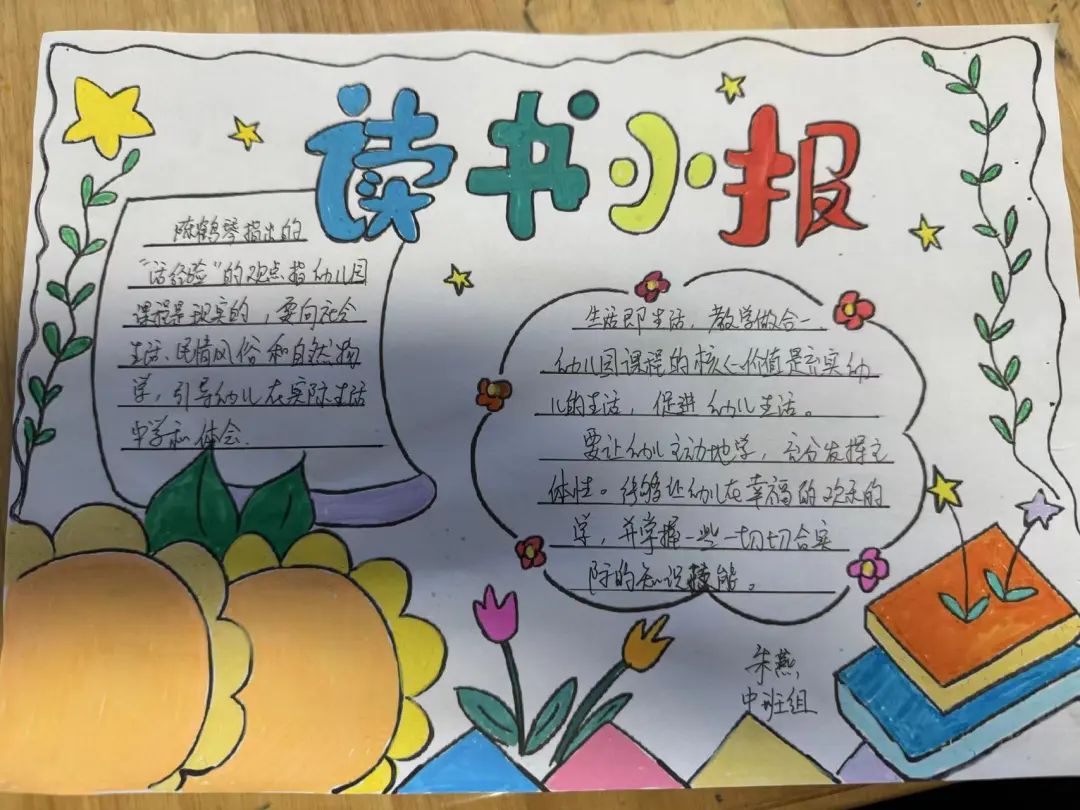 读书小报
陈鹤琴指出的
“活经验”的观点指幼儿园
课程是现实的，要向社会
生活、民情风俗和自然物
学，引导幼儿在实际生活
中学和体会.
生活即生活，教学做合一
幼儿园课程的核心价值是充实幼
儿的生活，促进幼儿生活。
要让幼儿主动地学，充分发挥主
体性。能够让幼儿在幸福的欢乐的
学，并掌握一些一切切合实
际的知识技能。
朱燕
中班组